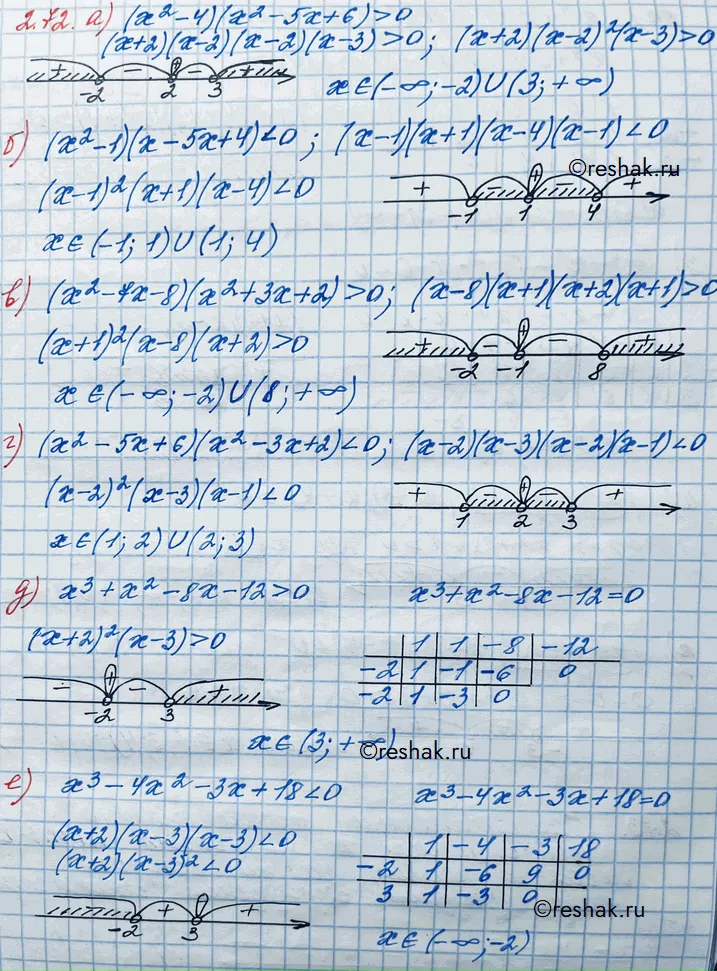 2.72. а) (x² - 4)(x² - 5x + 6) > 0
(x+2)(x-2)(x-2)(x-3) > 0; (x+2)(x-2)²(x-3) > 0
+ - - +
-2 2 3
x ∈ (-∞; -2) ∪ (3; +∞)
б) (x² - 1)(x - 5x + 4) < 0; (x-1)(x+1)(x-4)(x-1) < 0
©reshak.ru
(x-1)²(x+1)(x-4) < 0
+ - + - +
-1 1 4
x ∈ (-1; 1) ∪ (1; 4)
в) (x² - 7x - 8)(x² + 3x + 2) > 0; (x-8)(x+1)(x+2)(x+1) > 0
(x+1)²(x-8)(x+2) > 0
+ - + - +
-2 -1 8
x ∈ (-∞; -2) ∪ (8; +∞)
г) (x² - 5x + 6)(x² - 3x + 2) < 0; (x-2)(x-3)(x-2)(x-1) < 0
(x-2)²(x-3)(x-1) < 0
+ - + - +
1 2 3
x ∈ (1; 2) ∪ (2; 3)
д) x³ + x² - 8x - 12 > 0 x³ + x² - 8x - 12 = 0
(x+2)²(x-3) > 0
1 1 -8 -12
-2 1 -1 -6 0
-2 1 -3 0
- + - +
-2 3
x ∈ (3; +∞)
©reshak.ru
е) x³ - 4x² - 3x + 18 < 0 x³ - 4x² - 3x + 18 = 0
(x+2)(x-3)(x-3) < 0
(x+2)(x-3)² < 0
1 -4 -3 18
-2 1 -6 9 0
3 1 -3 0
©reshak.ru
+ +
-2 3
x ∈ (-∞; -2)